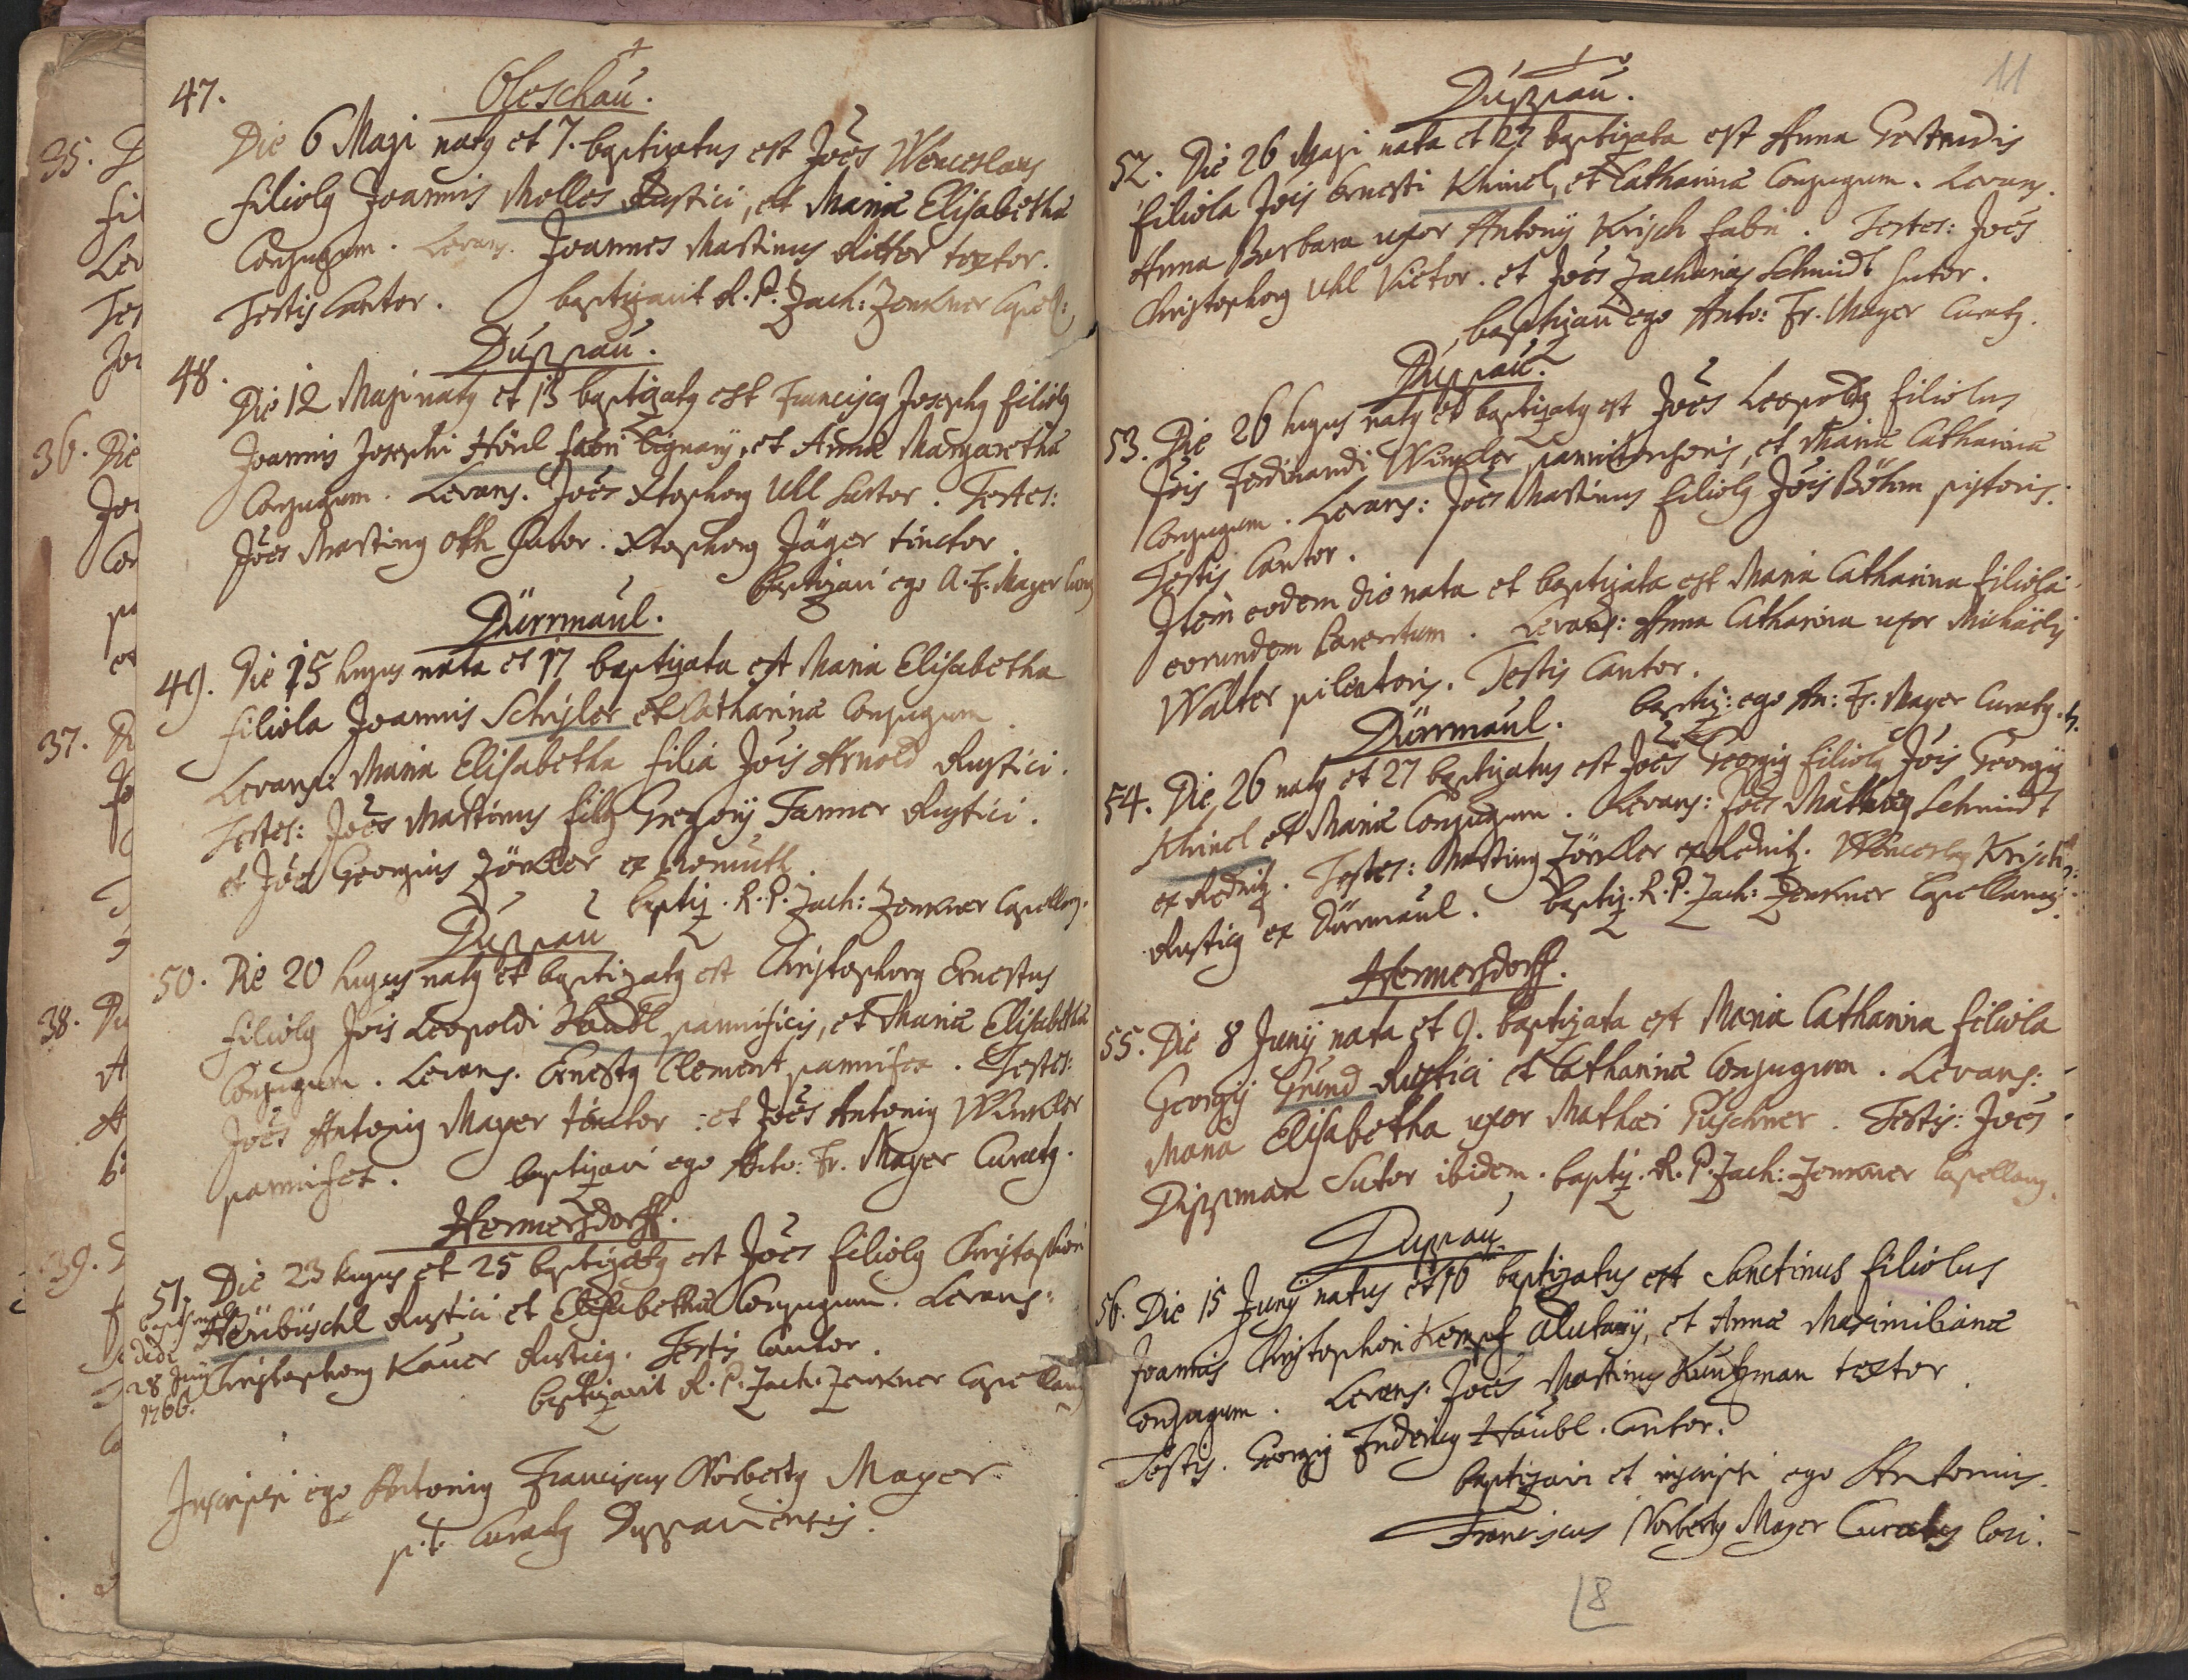 47.
Oleschau.
Die 6 Maji natq et 7. baptizatus est Joes Wenceslaus
filiolq Joannis Molles Rustici, et Maria Elisabetha
Conjugum. Levans. Joannes Martinus Ritter textor.
Testis Cantor. baptizavit R. P. Zach: Zenkner Capel:
Duppau.
48.
Die 12 Maji natq et 13 baptizatq est Franciscq Josephq filiolq
Joannis Josephi Hörl fabri lignarij, et Anna Margaretha
Conjugum. Levans. Joes Xtophorq Uhl Sartor. Testes:
Joes Martinq Oth Sutor. Xtophorq Jäger tinctor.
baptizavi ego A. F. Mayer Curatq
Dürrmaul.
49. Die 15 hujus nata et 17 baptizata est Maria Elisabetha
filiola Joannis Schisler et Catharina Conjugum.
Levans: Maria Elisabetha filia Jois Arnold Rustici.
Testes: Joes Martinus filq Gregorij Tanner Rustici.
et Joes Georgius Zörkler ex
baptiz. R. P. Zach: Zenkner Capellanq.
Duppau
50. Die 20 hujus natq et baptizatq est Christophorq Ernestus
filiolq Jois Leopoldi Haubl pannificis, et Maria Elisabetha
Conjugum. Levans. Ernestq Clement pannifex. Testes:
Joes Antoniq Mayer tinctor: et Joes Antoniq Winkler
pannifex. baptizavi ego Anto: Fr. Mayer Curatq.
Hermersdorff.
51. Die 23 hujus et 25 baptizatq est Joes filiolq Christophori
Heribüschl Rustici et Elisabetha Conjugum. Levans:
Christophorq Kauer Rusticq. Testis Cantor.
baptizavit R. P. Zach: Zenkner Capellanq
dedi
28 Junij
1766.
Inscripsi ego Antoniq Franciscus Norbertq Mayer
p.t. Curatq Duppaviensis.
11
Duppau.
52. Die 26 Maji nata et 27 baptizata est Anna Gertrudis
filiola Jois Ernesti Khinel, et Catharina Conjugum. Levans.
Anna Barbara uxor Antonij Krisch fabri. Testes: Joes
Christophorq Uhl Victor. et Joes Zacharias Schmidt Sutor.
baptizavi ego Anto: Fr. Mayer Curatq.
Duppau.
53. Die 26 hujus natq et baptizatq est Joes Leopoldq filiolus
Jois Ferdinandi Winkler pannitonsoris, et Maria Catharina
Conjugum. Levans: Joes Martinus filiolq Jois Böhm pistoris.
Testis Cantor.
Item eodem die nata et baptizata est Maria Catharina filiola
eorundem Parentum. Levans: Anna Catharina uxor Michaelis
Walter pileatoris. Testis Cantor.
baptiz: ego An: Fr. Mayer Curatq.
Dürrmaul.
54. Die 26 natq et 27 baptizatus est Joes Georgiq filiolq Jois Georgij
Khinel et Maria Conjugum. Levans: Joes Schmidt
ex Rednitz. Testes: Martinq Zörkler ex Rednitz. Wenceslaq Krisch
Rusticq ex Dürrmaul. baptiz. R. P. Zach: Zenkner Capellanq.
Hermersdorff.
55. Die 8 Junij nata et 9. baptizata est Maria Catharina filiola
Georgij Grund Rustici et Catharina Conjugum. Levans:
Maria Elisabetha uxor Mathaei Puschner. Testis: Joes
Dippman Sutor ibidem. baptiz. R. P. Zach: Zenkner Capellanq.
Duppau
56. Die 15 Junij natus et 16 baptizatus est Sanctinus filiolus
Joannis Christophori Kempf alutarij, et Anna Maximiliana
Conjugum. Levans. Joes Martinus Kuntzman textor.
Testis. Georgiq Haubl. Cantor.
baptizavi et inscripsi ego Antonius
Franciscus Norbertq Mayer Curatus loci.
8